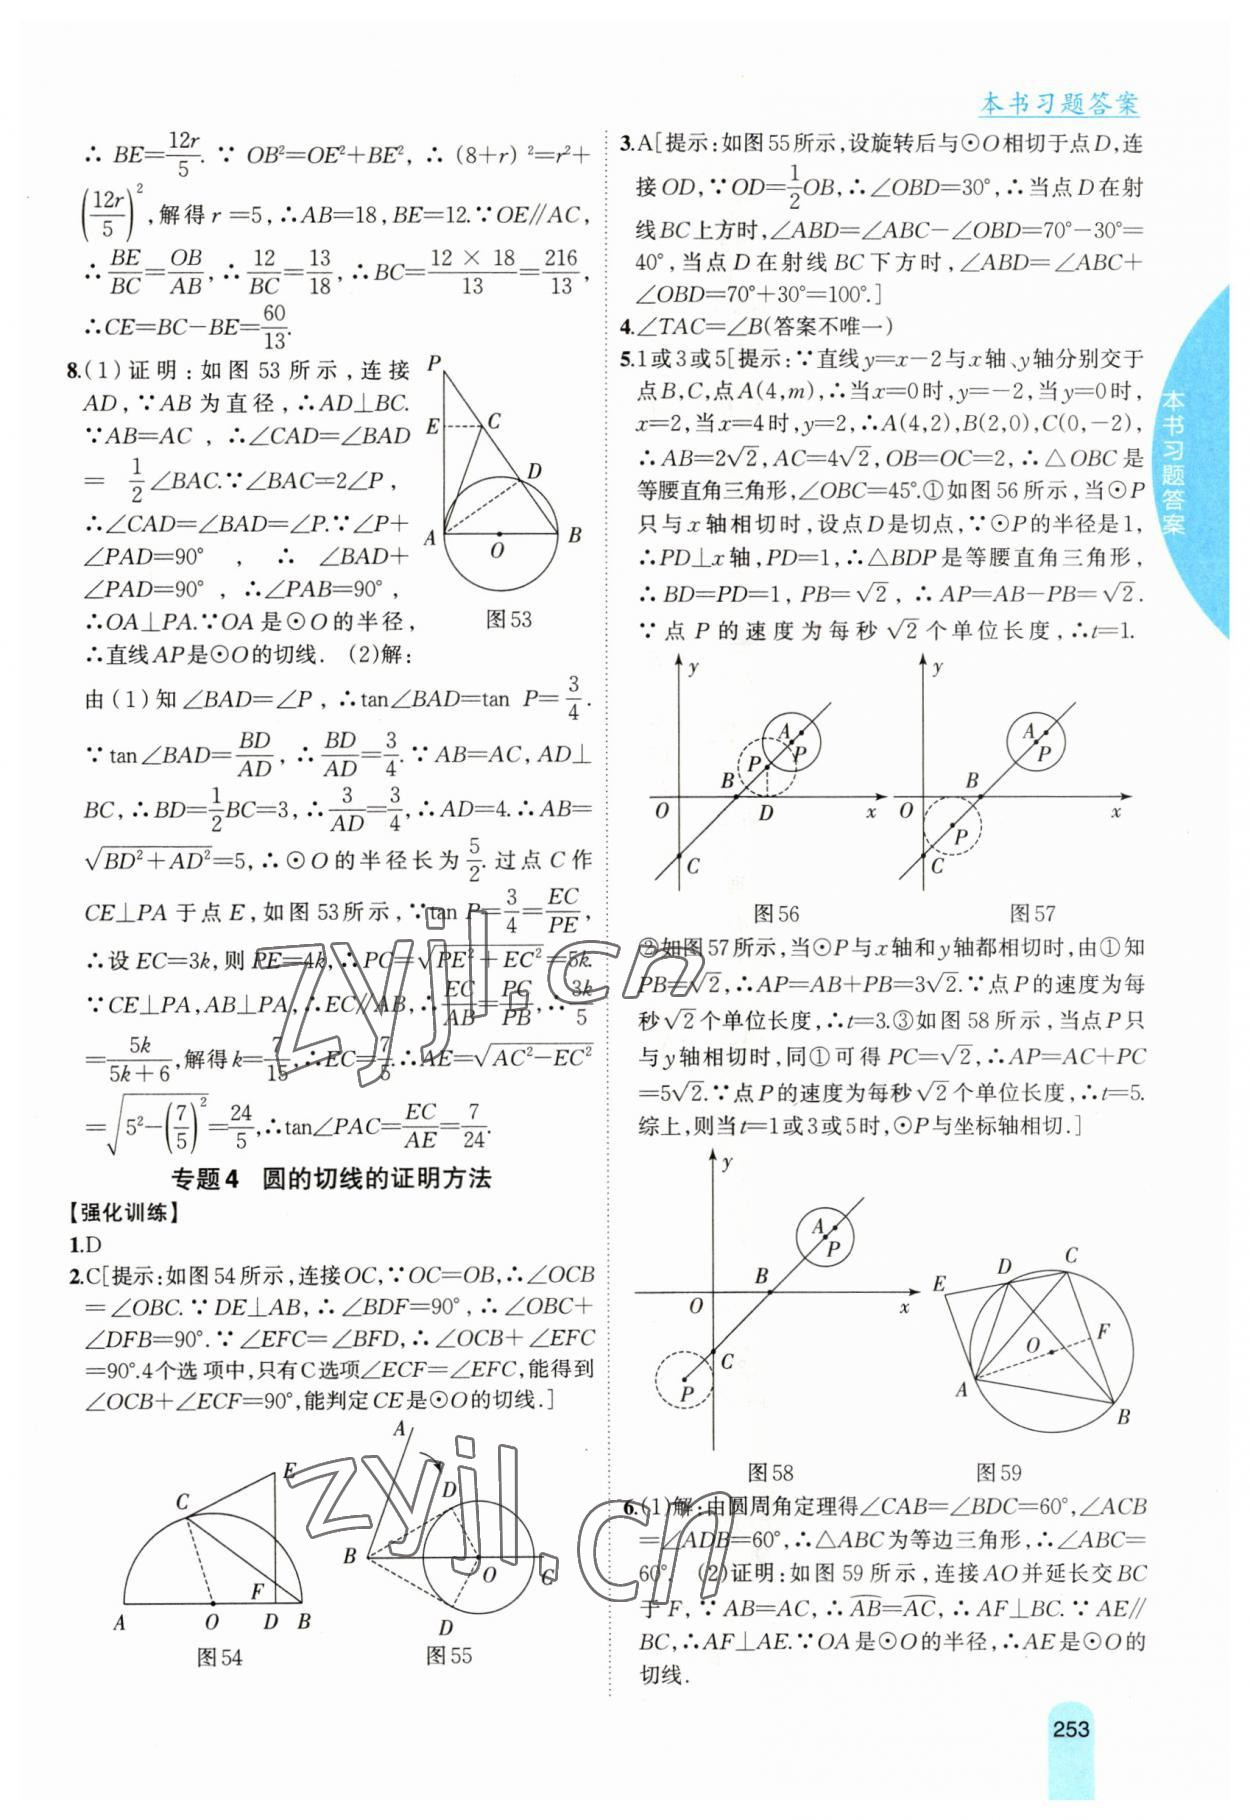 本书习题答案
∴ BE=12r/5. ∵ OB²=OE²+BE², ∴ (8+r)²=r²+
(12r/5)²,解得r=5,∴AB=18,BE=12.∵OE∥AC,
∴ BE/BC=OB/AB, ∴ 12/BC=13/18, ∴BC=(12×18)/13=216/13,
∴CE=BC-BE=60/13.
8.(1)证明:如图53所示,连接
AD,∵AB为直径,∴AD⊥BC.
∵AB=AC,∴∠CAD=∠BAD
= 1/2∠BAC.∵∠BAC=2∠P,
∴∠CAD=∠BAD=∠P.∵∠P+
∠PAD=90°, ∴ ∠BAD+
∠PAD=90°, ∴∠PAB=90°,
∴OA⊥PA.∵OA是⊙O的半径,
∴直线AP是⊙O的切线. (2)解:
P
E
C
D
A
O
B
图53
由(1)知∠BAD=∠P,∴tan∠BAD=tan P=3/4.
∵tan∠BAD=BD/AD, ∴BD/AD=3/4. ∵AB=AC,AD⊥
BC,∴BD=1/2BC=3,∴3/AD=3/4,∴AD=4.∴AB=
√(BD²+AD²)=5,∴⊙O的半径长为5/2.过点C作
CE⊥PA于点E,如图53所示,∵tan P=3/4=EC/PE,
∴设EC=3k,则PE=4k,∴PC=√(PE²+EC²)=5k.
∵CE⊥PA,AB⊥PA,∴EC∥AB,∴EC/AB=PC/PB,∴3k/5
=5k/(5k+6),解得k=7/15,∴EC=7/5.∴AE=√(AC²-EC²)
=√(5²-(7/5)²)=24/5,∴tan∠PAC=EC/AE=7/24.
专题4 圆的切线的证明方法
【强化训练】
1.D
2.C[提示:如图54所示,连接OC,∵OC=OB,∴∠OCB
=∠OBC.∵DE⊥AB,∴∠BDF=90°,∴∠OBC+
∠DFB=90°.∵∠EFC=∠BFD,∴∠OCB+∠EFC
=90°.4个选项中,只有C选项∠ECF=∠EFC,能得到
∠OCB+∠ECF=90°,能判定CE是⊙O的切线.]
E
C
F
A
O
D
B
图54
A
D
B
O
C
D
图55
3.A[提示:如图55所示,设旋转后与⊙O相切于点D,连
接OD,∵OD=1/2OB,∴∠OBD=30°,∴当点D在射
线BC上方时,∠ABD=∠ABC-∠OBD=70°-30°=
40°,当点D在射线BC下方时,∠ABD=∠ABC+
∠OBD=70°+30°=100°.]
4.∠TAC=∠B(答案不唯一)
5.1或3或5[提示:∵直线y=x-2与x轴、y轴分别交于
点B,C,点A(4,m),∴当x=0时,y=-2,当y=0时,
x=2,当x=4时,y=2,∴A(4,2),B(2,0),C(0,-2),
∴AB=2√2,AC=4√2,OB=OC=2,∴△OBC是
等腰直角三角形,∠OBC=45°.①如图56所示,当⊙P
只与x轴相切时,设点D是切点,∵⊙P的半径是1,
∴PD⊥x轴,PD=1,∴△BDP是等腰直角三角形,
∴BD=PD=1,PB=√2,∴AP=AB-PB=√2.
∵点P的速度为每秒√2个单位长度,∴t=1.
y
A
P
P
B
O
D
x
C
图56
y
A
P
B
O
x
P
C
图57
②如图57所示,当⊙P与x轴和y轴都相切时,由①知
PB=√2,∴AP=AB+PB=3√2.∵点P的速度为每
秒√2个单位长度,∴t=3.③如图58所示,当点P只
与y轴相切时,同①可得PC=√2,∴AP=AC+PC
=5√2.∵点P的速度为每秒√2个单位长度,∴t=5.
综上,则当t=1或3或5时,⊙P与坐标轴相切.]
y
A
P
B
O
x
C
P
图58
E
D
C
O
F
A
B
图59
6.(1)解:由圆周角定理得∠CAB=∠BDC=60°,∠ACB
=∠ADB=60°,∴△ABC为等边三角形,∴∠ABC=
60°. (2)证明:如图59所示,连接AO并延长交BC
于F,∵AB=AC,∴AB=AC,∴AF⊥BC.∵AE∥
BC,∴AF⊥AE.∵OA是⊙O的半径,∴AE是⊙O的
切线.
本书习题答案
zyjl.cn
zyjl.cn
253